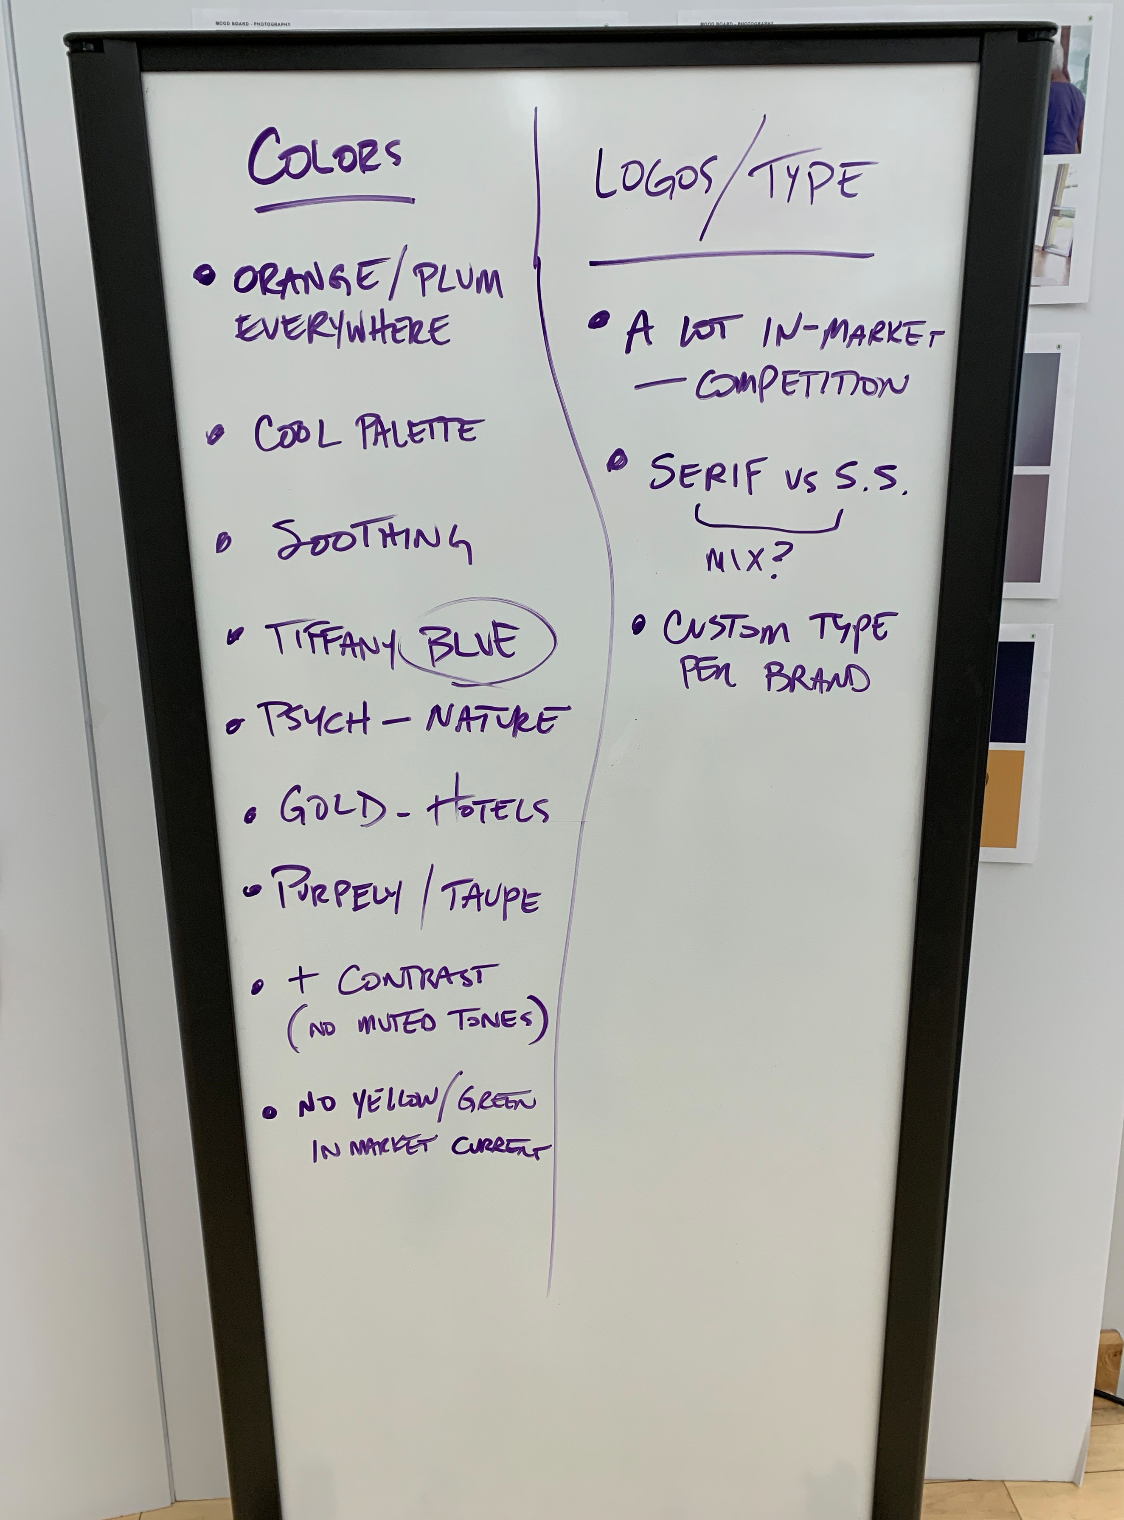 MOOD BOARD - PHOTOGRAPHY
MOOD BOARD - PHOTOGRAPHY
COLORS
• ORANGE/PLUM
EVERYWHERE
• COOL PALETTE
• SOOTHING
• TIFFANY BLUE
• PSYCH - NATURE
• GOLD - HOTELS
• PURPELY / TAUPE
• + CONTRAST
(NO MUTED TONES)
• NO YELLOW/GREEN
IN MARKET CURRENT
LOGOS/TYPE
• A LOT IN-MARKET
— COMPETITION
• SERIF VS S.S.
MIX?
• CUSTOM TYPE
PER BRAND